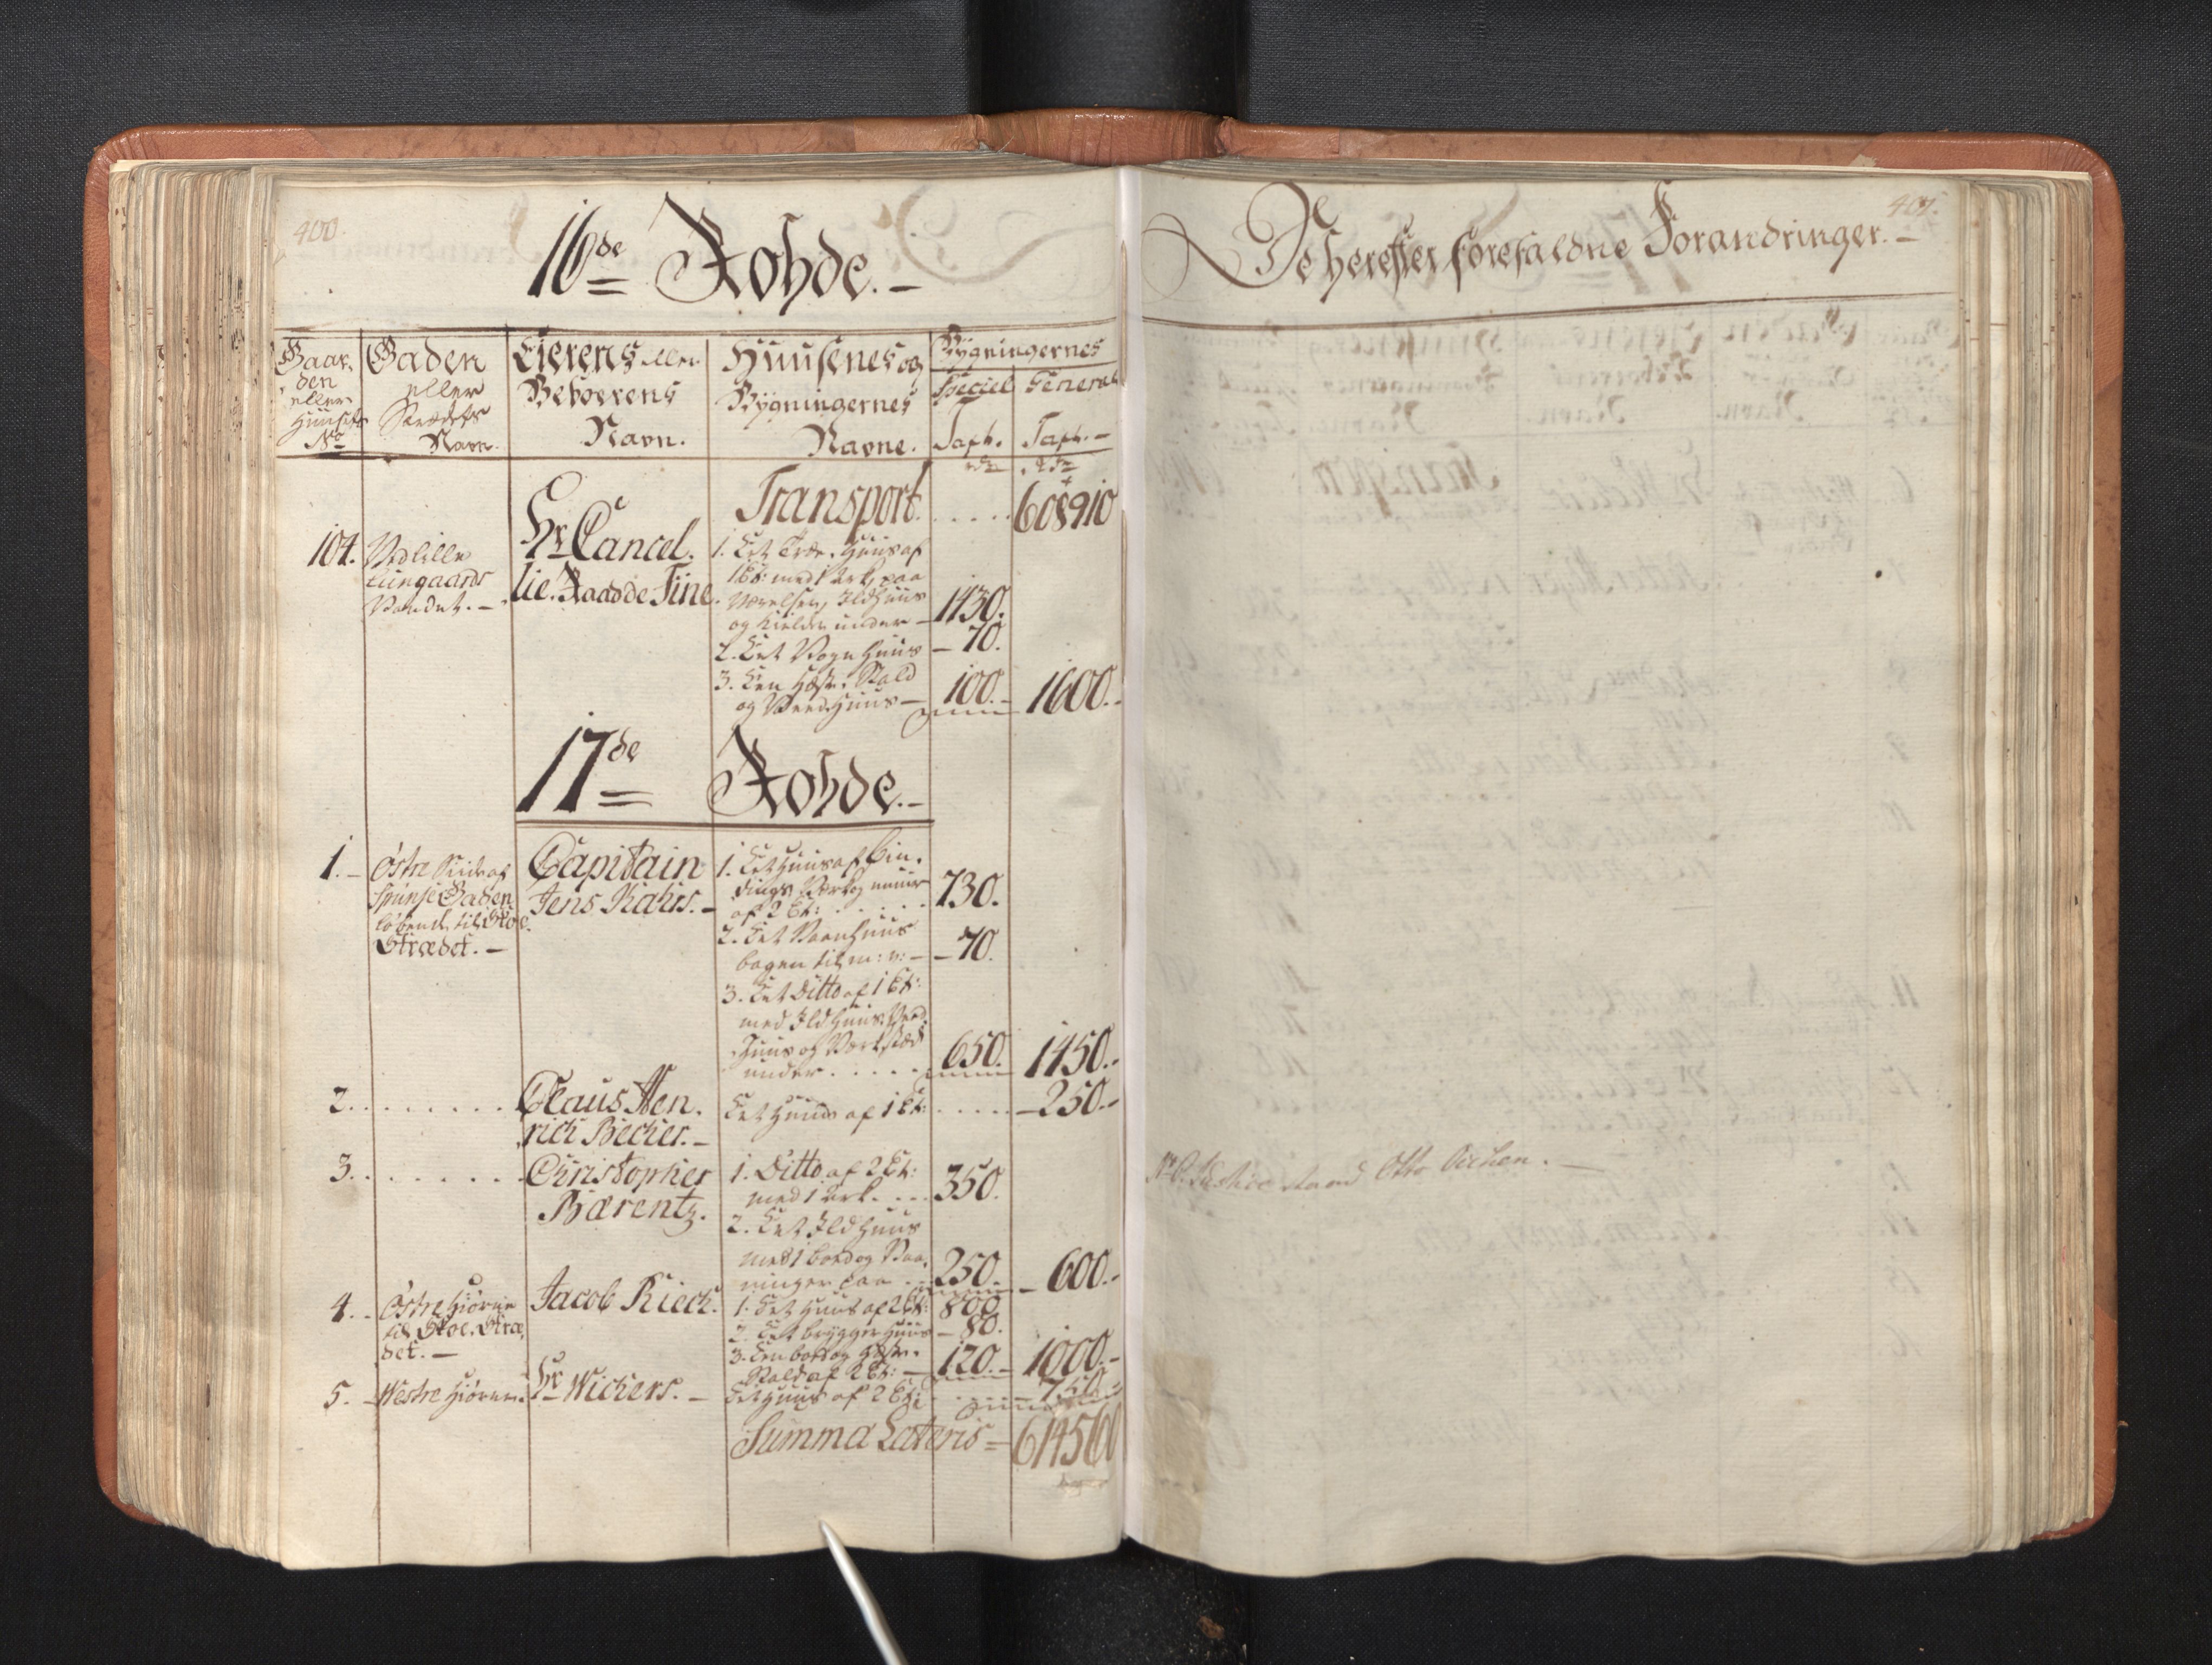 400.
16de Rohde.
Gaar- den eller Huusets No
Gaden eller Strædets Navn.
Eierens eller Beboerens Navn.
Huusenes og Bygningernes Navne.
Bygningernes
Speciel Taxt.
General Taxt.
rdr rdr
Transport. . . . . . 608910
104. Ved lille Lungaards Vandet.
Hr Cancel- lie-Raad de Fine.
1. Eet Træe-Huus af
1 Et: med 1 Ark paa
Værelser, Ildhuus
og Kielder under – 1430.
2. Eet Vogn Huus – 70.
3. Een Hæste-Stald
og Veed-Huus – 100. 1600.
17de Rohde.
1. Østre Side af
Løbende til Skoe-
Strædet.
Capitain
Jens Kahrs.
1. Eet Huus af Bin-
dings Værk og muur
af 2 Et: . . . . . 730.
2. Eet Vaanhuus
bagen til m: v: – 70.
3. Eet Ditto af 1 Et:
med Ildhuus, Veed-
Huus og Værksted
under . . . . . 650. 1450.
2. . . . . . . . Claus Hen-
rich Becker.
Eet Huus af 1 Et: . . . . . 250.
3. . . . . . . Christopher
Bærentz.
1. Ditto af 2 Et:
med 1 Ark . . . 350.
2. Eet Ildhuus
med 1 Boed og Vaa-
ninger paa . . 250. 600.
4. Østre Hiørne
til Skoe-Stræ-
det.
Jacob Kieck.
1. Eet Huus af 2 Et: 800.
2. Eet brygger Huus – 80.
3. Een Boed og Hæste-
Stald af 2 Et: – 120. 1000.
5. Westre Hiørne. Hr Wickers. Eet Huus af 2 Et: 750.
Summa Lateris = 614560
401.
De herefter forefaldne Forandringer.